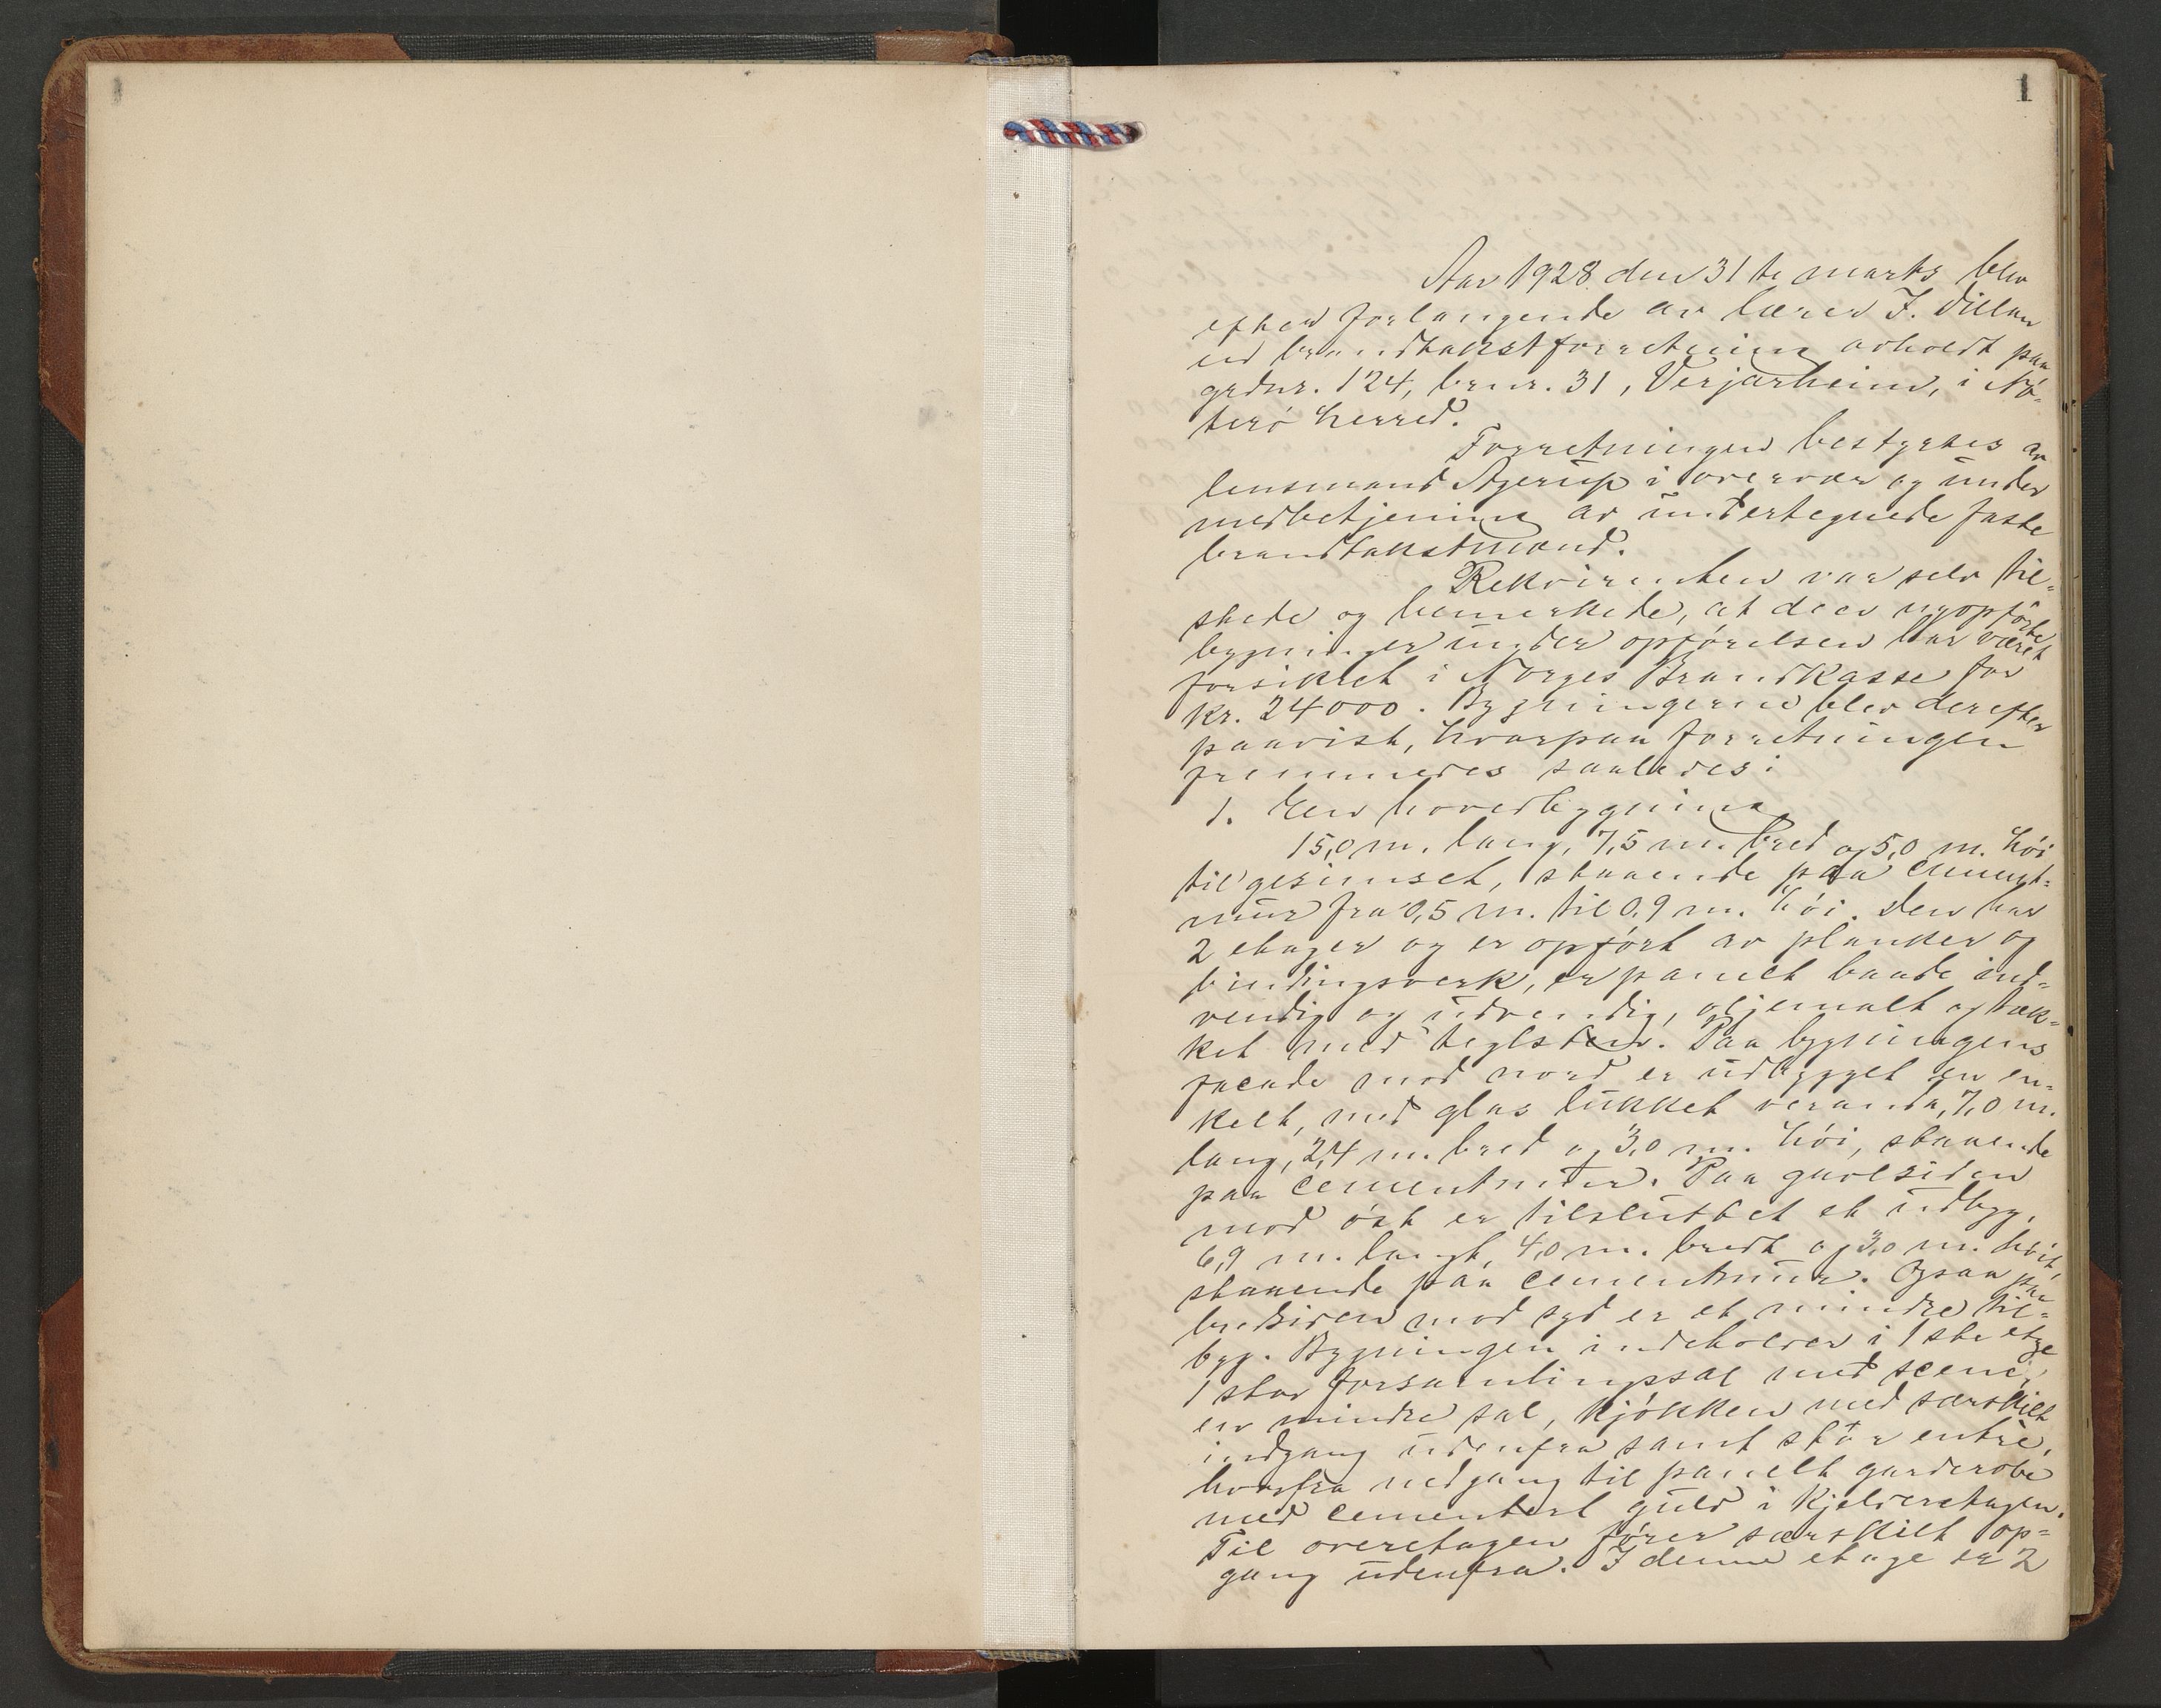 1
Aar 1928 den 31te marts blev
efter forlangende av lærer J. Dillan
en brandtakstforretning avholdt paa
grdnr. 124, brnr. 31, Verjarheim, i Nø-
terö herred.
Forretningen bestyrtes av
lensmand Agerup i overvær og under
medbetjening av undertegnede faste
brandtakstmænd.
Rekvirenten var selv til-
stede og bemerkede, at de er nyopførte
bygninger under opførelsen har været
forsikret i Norges Brandkasse for
kr. 24000. Bygningerne blev derefter
paavist, hvorpaa forretningen
fremmedes saaledes:
1. En hovedbygning
15,0 m. lang, 7,5 m. bred og 5,0 m. höi
til gesimset, staaende paa cement-
mur fra 0,5 m. til 0,9 m. höi. Den har
2 etager og er opfört av planker og
bindingsverk, er panelt baade ind-
vendig og udvendig, oljemalt og tæk-
ket med teglsten. Paa bygningens
facade mod nord er udbygget en en-
kelt, med glas lukket veranda, 7,0 m.
lang, 2,4 m. bred og 3,0 m. höi, staaende
paa cementmur. Paa gavlsiden
mod öst er tilsluttet et udbyg,
6,9 m. langt, 4,0 m. bredt og 3,0 m. höit,
staaende paa cementmur. Ogsaa paa
bredsiden mod syd er et mindre til-
byg. Bygningen indeholder i 1ste etge
1 stor forsamlingssal med scene,
en mindre sal, kjökken med særskilt
indgang udenfra samt stor entré,
hvorfra nedgang til panelt garderobe
med cementert gulv i kjelderetagen.
Til overetagen förer særskilt op-
gang udenfra. I denne etage er 2